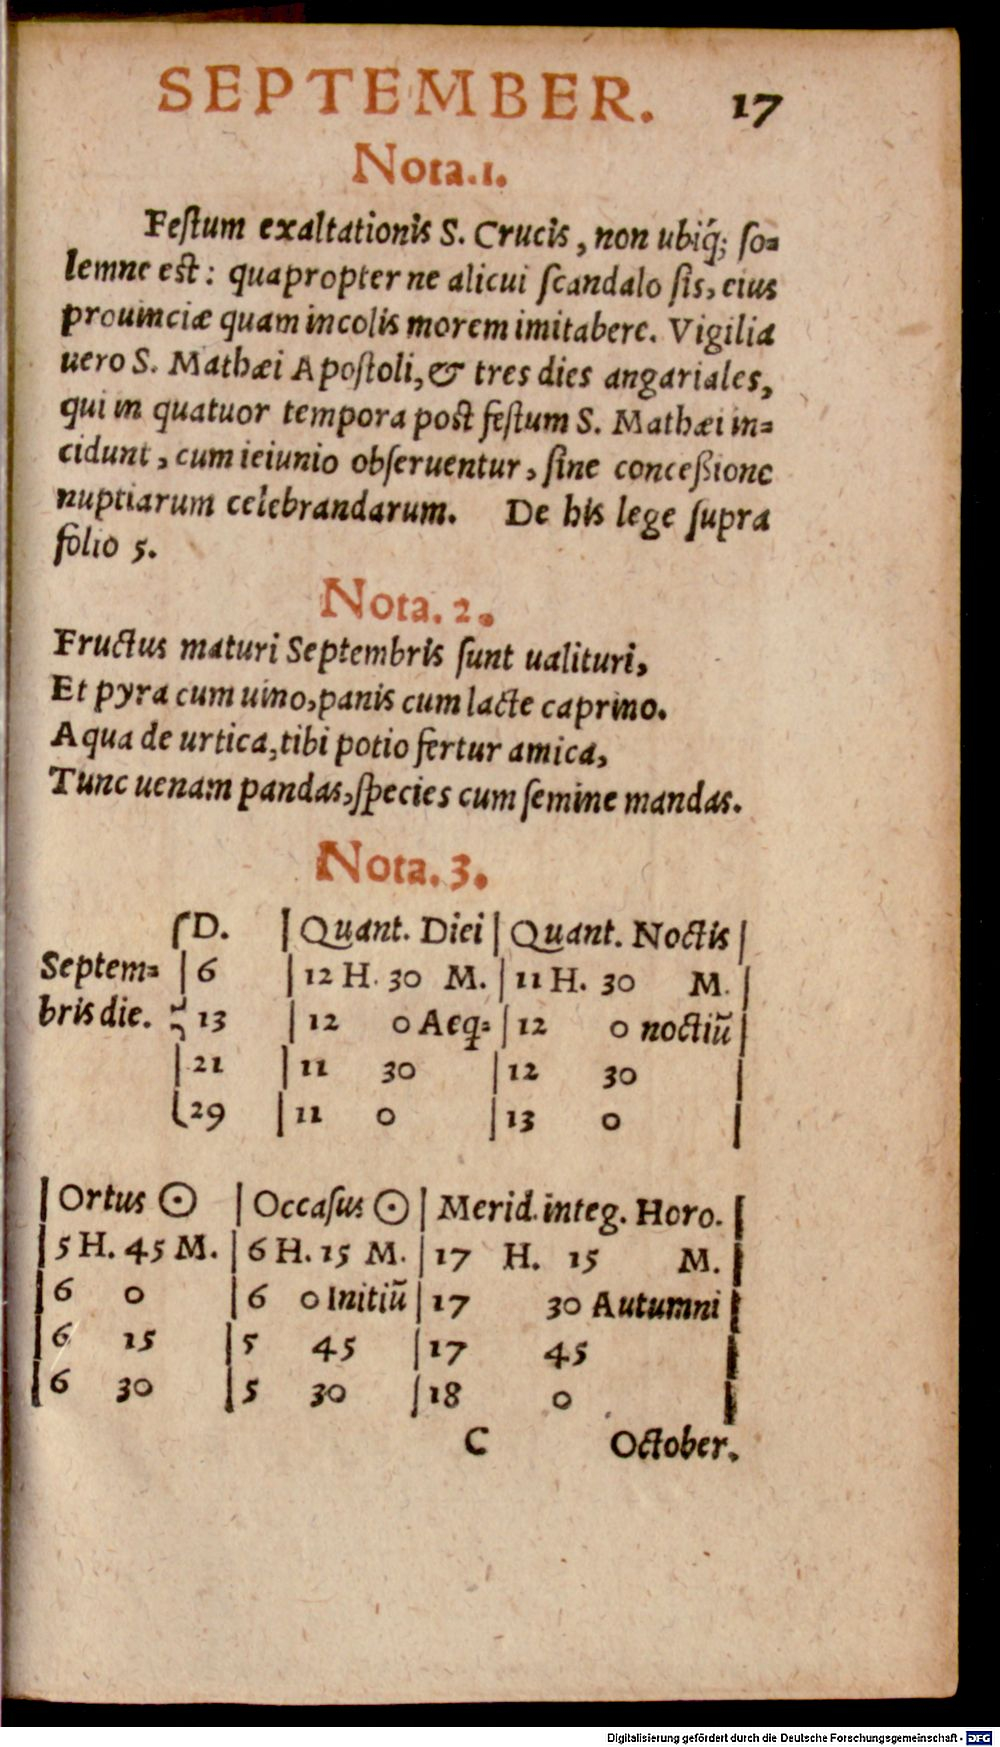 SEPTEMBER. 17
Nota.1.
Feſtum exaltationis S. Crucis, non ubiq́; ſo=
lemne eſt: quapropter ne alicui ſcandalo ſis, eius
prouinciæ quam incolis morem imitabere. Vigilia
uero S. Mathæi Apoſtoli, & tres dies angariales,
qui in quatuor tempora poſt feſtum S. Mathæi in=
cidunt, cum ieiunio obſeruentur, ſine conceßione
nuptiarum celebrandarum. De his lege ſupra
folio 5.
Nota. 2.
Fructus maturi Septembris ſunt ualituri,
Et pyra cum uino, panis cum lacte caprino.
Aqua de urtica, tibi potio fertur amica,
Tunc uenam pandas, ſpecies cum ſemine mandas.
Nota. 3.
D. | Quant. Diei | Quant. Noctis |
Septem= | 6 | 12 H. 30 M. | 11 H. 30 M. |
bris die. 13 | 12 0 Aeq= | 12 0 noctiũ |
| 21 | 11 30 | 12 30 |
29 | 11 0 | 13 0 |
| Ortus ☉ | Occaſus ☉ | Merid. integ. Horo. |
| 5 H. 45 M. | 6 H. 15 M. | 17 H. 15 M. |
| 6 0 | 6 0 Initiũ | 17 30 Autumni |
| 6 15 | 5 45 | 17 45 |
| 6 30 | 5 30 | 18 0 |
C October.
Digitalisierung gefördert durch die Deutsche Forschungsgemeinschaft - DFG